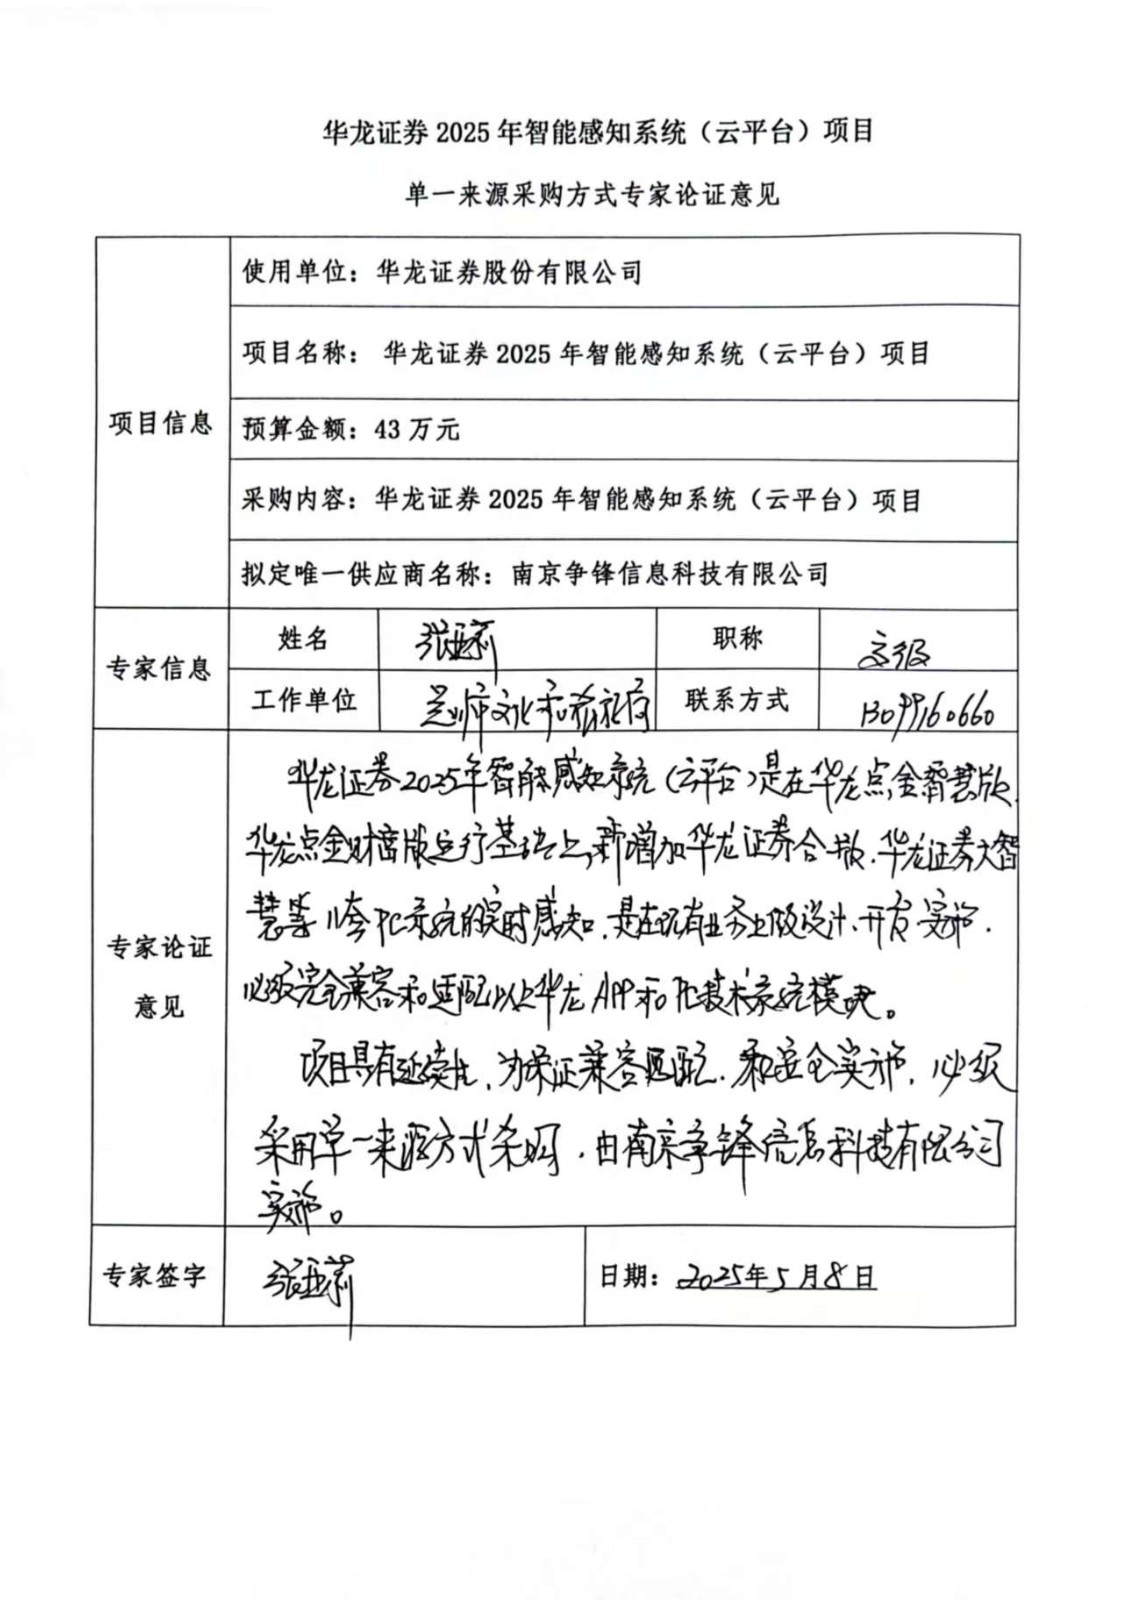 华龙证券 2025 年智能感知系统（云平台）项目
单一来源采购方式专家论证意见
项目信息
使用单位：华龙证券股份有限公司
项目名称： 华龙证券 2025 年智能感知系统（云平台）项目
预算金额：43 万元
采购内容：华龙证券 2025 年智能感知系统（云平台）项目
拟定唯一供应商名称：南京争锋信息科技有限公司
专家信息
姓名 张亚莉 职称 高级
工作单位 兰州市文化和旅游局 联系方式 13099160660
专家论证
意见
华龙证券2025年智能感知系统（云平台）是在华龙点金智慧版、
华龙点金财富版运行基础上，新增加华龙证券合一版、华龙证券大智
慧等 PC系统的实时感知，是在现有业务上做设计、开发、实施，
必须完全兼容和适配以上华龙APP和PC技术系统模块。
项目具有延续性，为保证兼容匹配，和安全实施，必须
采用单一来源方式采购，由南京争锋信息科技有限公司
实施。
专家签字 张亚莉 日期：2025年5月8日